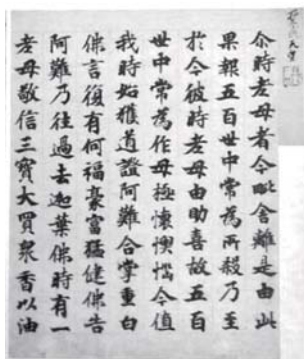 尒時老母者今毗舍離是由此
果報五百世中常為所殺乃至
於今彼時老母由助喜故五百
世中常為作母極懷懊惱今值
我時始獲道證阿難合掌重白
佛言復有何福豪富猛健佛告
阿難乃往過去迦葉佛時有一
老母敬信三寶大買衆香以油